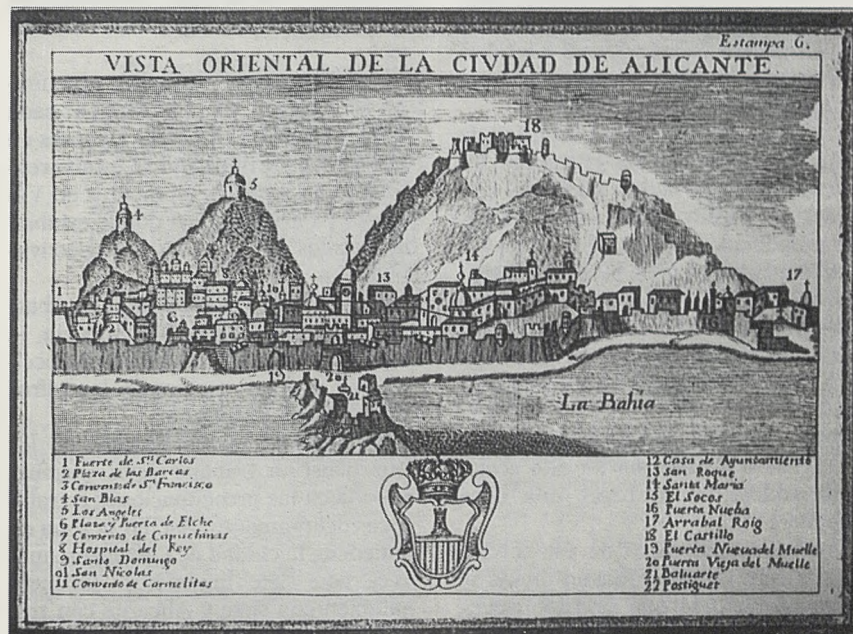 Estampa 6.
VISTA ORIENTAL DE LA CIVDAD DE ALICANTE
18
5
4
14
13
17
1
2
6
19
20
21
La Bahia
1 Fuerte de Sn. Carlos
2 Plaza de las Barcas
3 Convento de Sn. Francisco
4 San Blas
5 Los Angeles
6 Plaza y Puerta de Elche
7 Convento de Capuchinas
8 Hospital del Rey
9 Santo Domingo
01 San Nicolas
11 Convento de Carmelitas
12 Casa de Ayuntamiento
13 San Roque
14 Santa Maria
15 El Socos
16 Puerta Nueba
17 Arrabal Roig
18 El Castillo
19 Puerta Nueva del Muelle
20 Puerta Vieja del Muelle
21 Baluarte
22 Postiguet